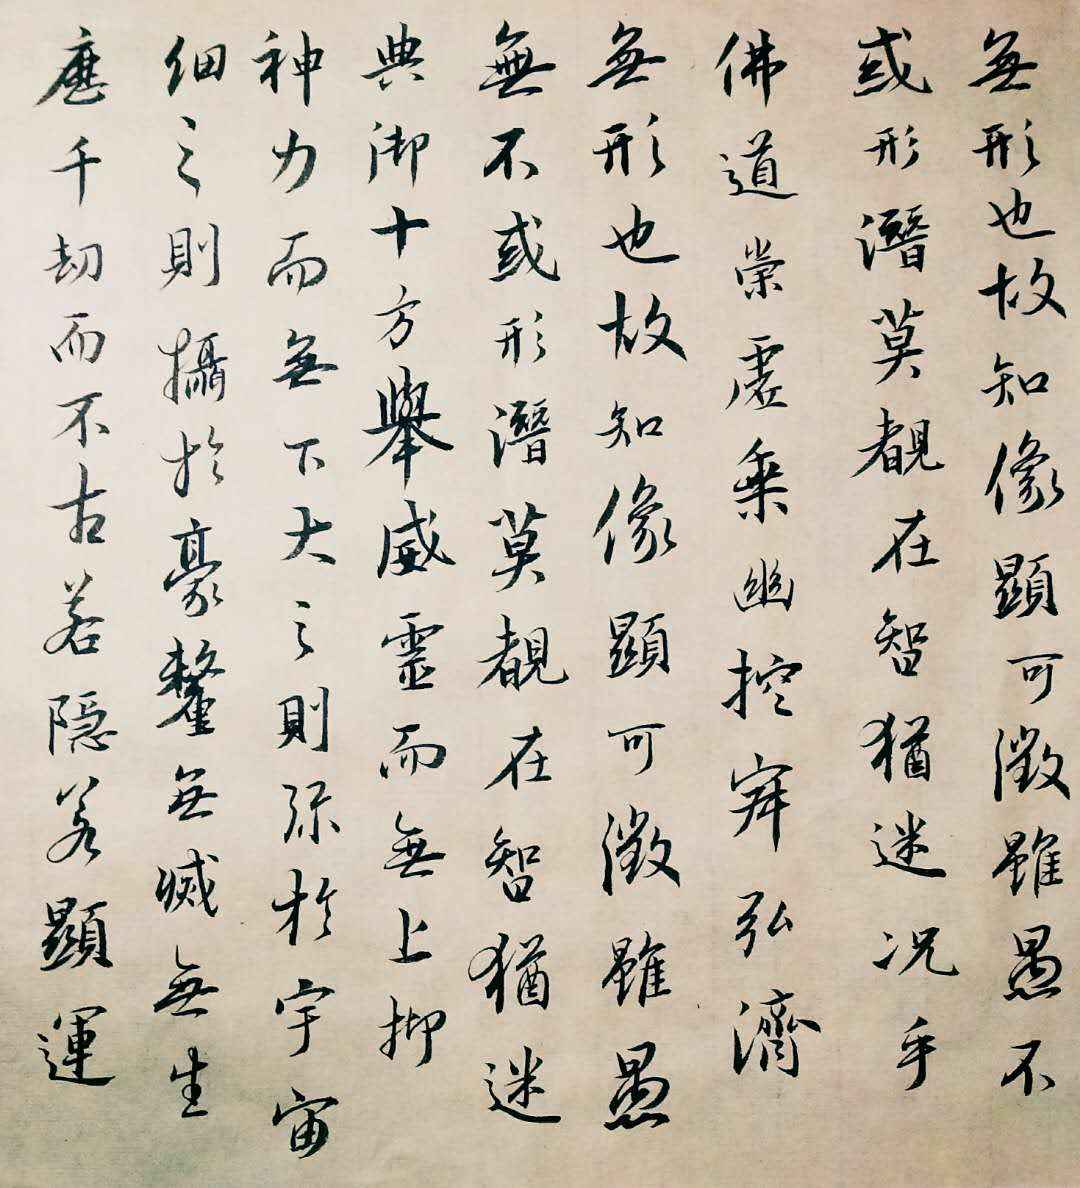 無形也故知像顯可徵雖愚不
或形潛莫覩在智猶迷况乎
佛道崇虚乘幽控寂弘濟
無形也故知像顯可徵雖愚
無不或形潛莫覩在智猶迷
典御十方舉威靈而無上抑
神力而無下大之則弥於宇宙
細之則攝於豪氂無滅無生
歷千劫而不古若隱若顯運